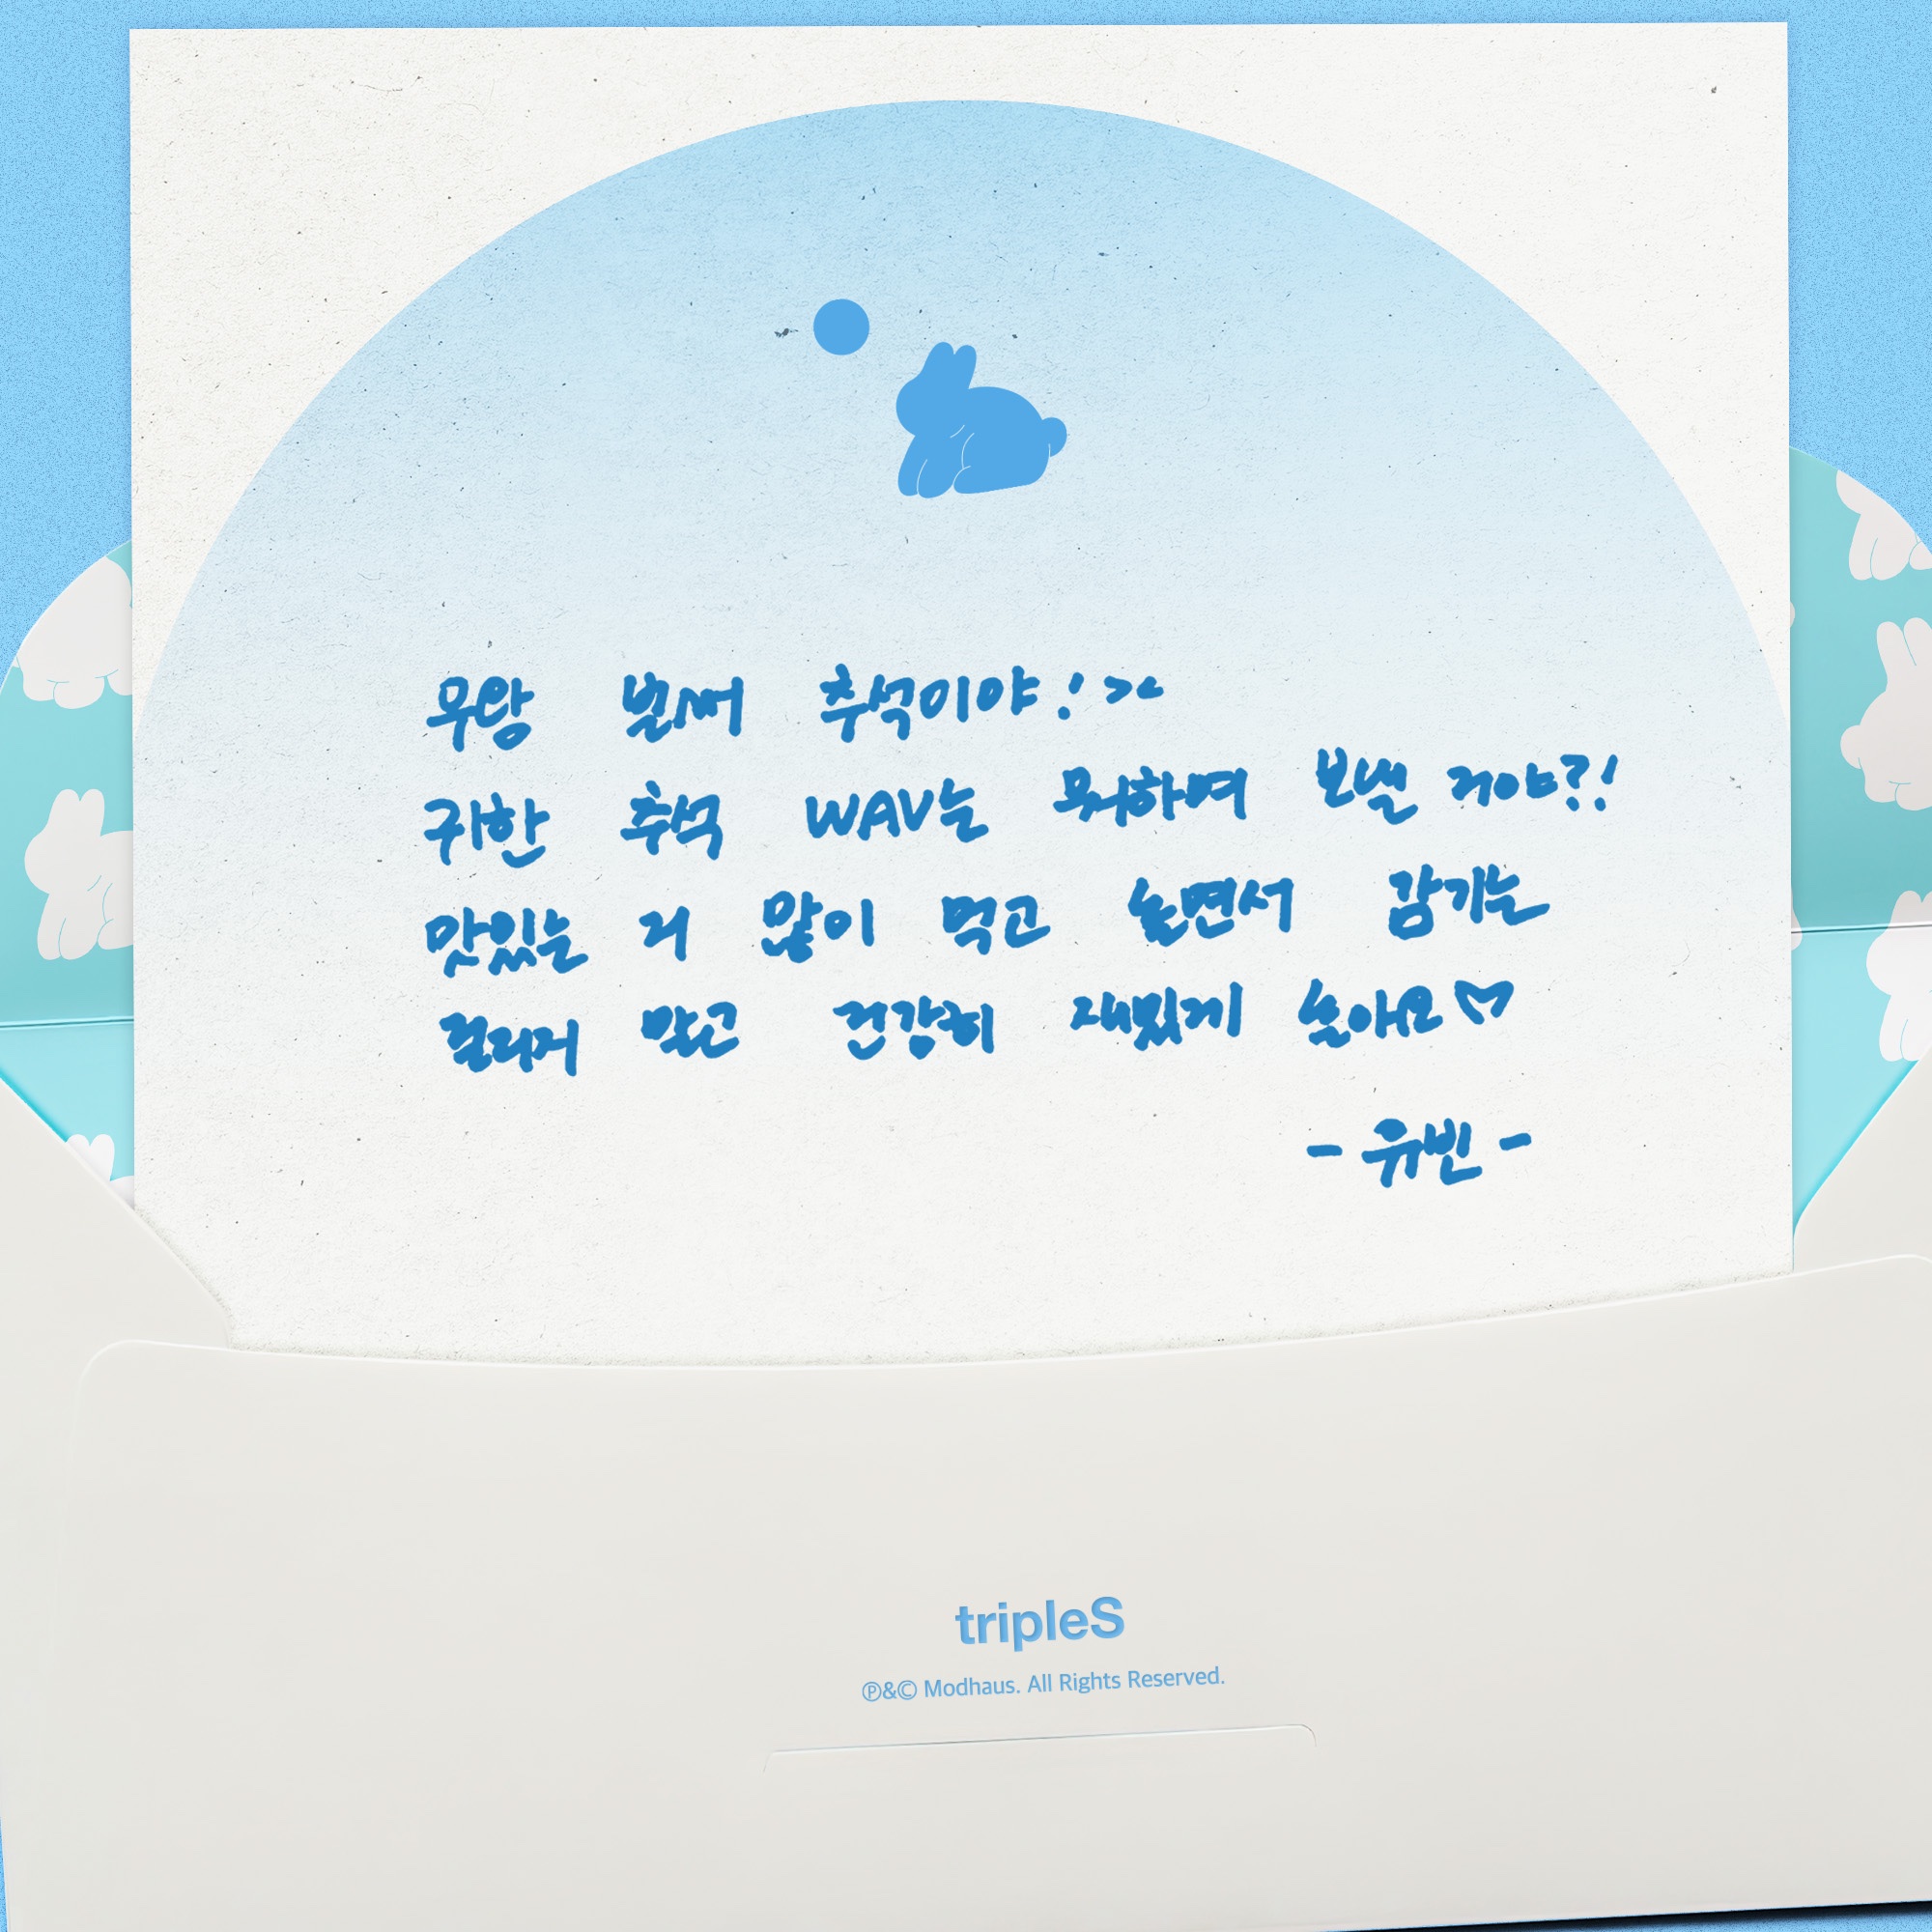 우왕 벌써 추석이야! ><
귀한 추석 WAV는 뭐하며 보낼 거야?!
맛있는 거 많이 먹고 놀면서 감기는
걸리지 말고 건강히 재밌게 놀아요♡
- 유빈 -
tripleS
℗&© Modhaus. All Rights Reserved.